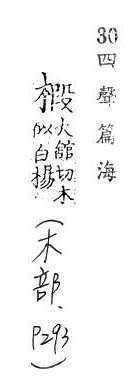 30 四聲篇海
椴 大館切木
似白楊
(木部、P293)